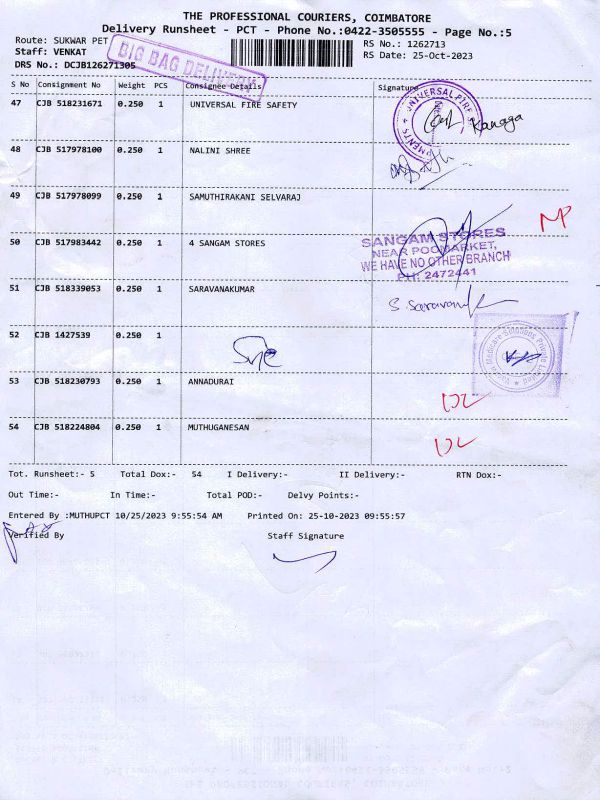 THE PROFESSIONAL COURIERS, COIMBATORE
Delivery Runsheet - PCT - Phone No.:0422-3505555 - Page No.:5
Route: SUKWAR PET
Staff: VENKAT
DRS No.: DCJB126271305
BIG BAG DELIVERY
RS No.: 1262713
RS Date: 25-Oct-2023
S No Consignment No Weight PCS Consignee Details Signature
47 CJB 518231671 0.250 1 UNIVERSAL FIRE SAFETY
UNIVERSAL FIRE
Kanaga
48 CJB 517978100 0.250 1 NALINI SHREE
49 CJB 517978099 0.250 1 SAMUTHIRAKANI SELVARAJ
NP
50 CJB 517983442 0.250 1 4 SANGAM STORES
SANGAM STORES
NEAR POOMARKET,
WE HAVE NO OTHER BRANCH
PH: 2472441
51 CJB 518339053 0.250 1 SARAVANAKUMAR
S. Saravan
52 CJB 1427539 0.250 1
53 CJB 518230793 0.250 1 ANNADURAI
DL
54 CJB 518224804 0.250 1 MUTHUGANESAN
DL
Tot. Runsheet:- 5 Total Dox:- 54 I Delivery:- II Delivery:- RTN Dox:-
Out Time:- In Time:- Total POD:- Delvy Points:-
Entered By :MUTHUPCT 10/25/2023 9:55:54 AM Printed On: 25-10-2023 09:55:57
Verified By Staff Signature